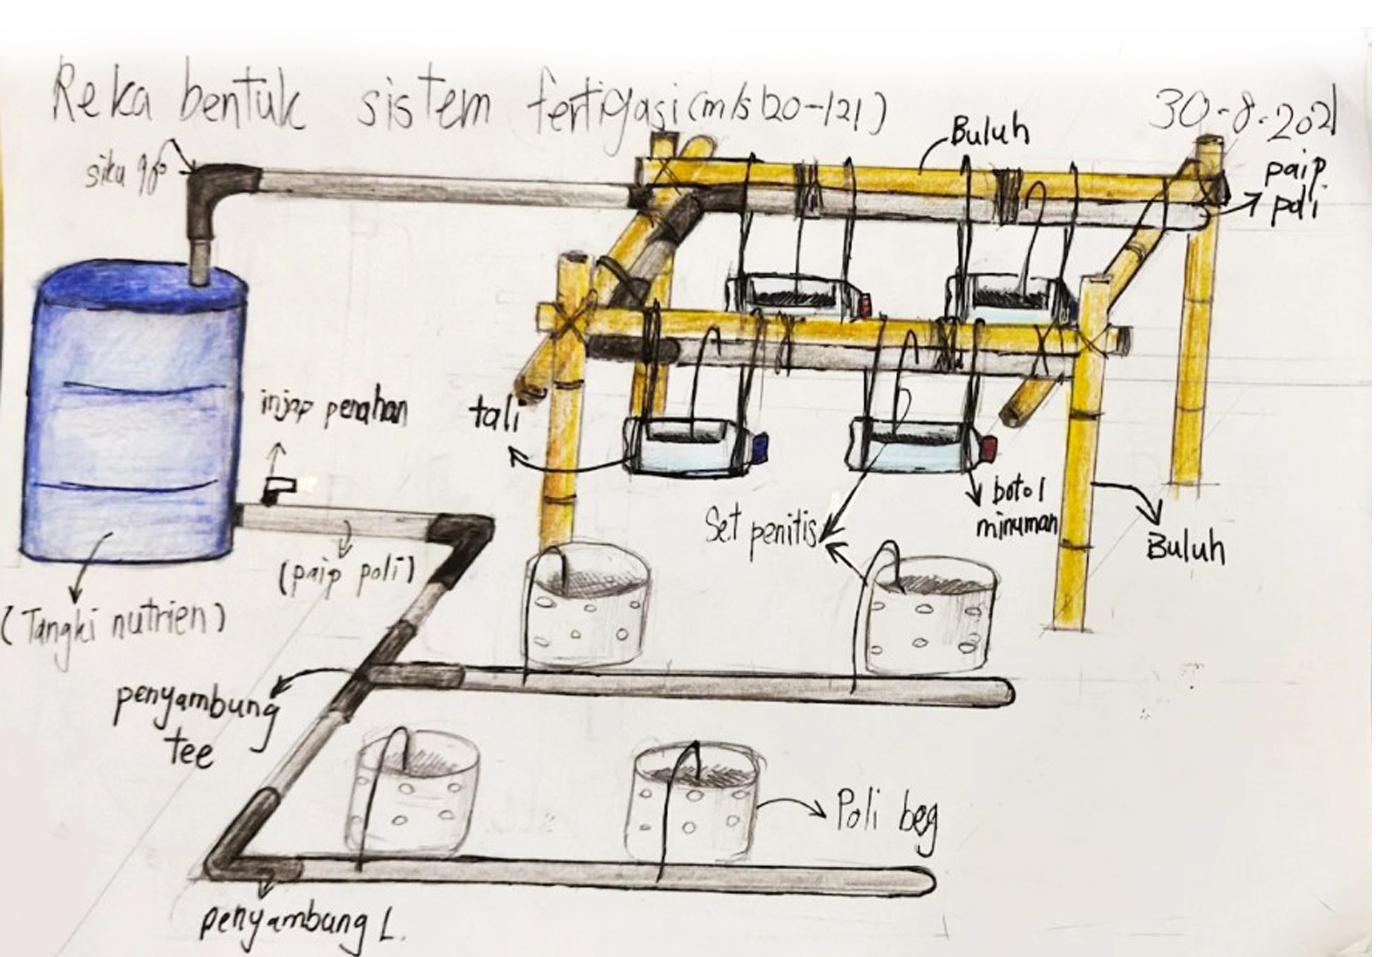 Reka bentuk sistem fertigasi (m/s 120-121)
30-8-2021
siku 90°
Buluh
paip
poli
injap penahan
tali
botol
minuman
Set penitis
Buluh
(paip poli)
(Tangki nutrien)
penyambung
tee
Poli beg
penyambung L.